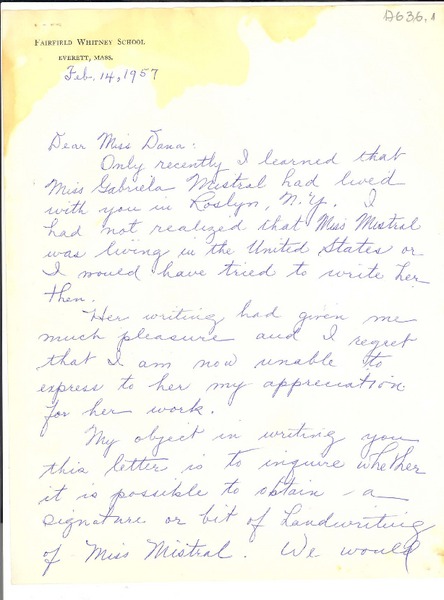 D636.1
FAIRFIELD WHITNEY SCHOOL
EVERETT, MASS.
Feb. 14, 1957
Dear Miss Dana:
Only recently I learned that
Miss Gabriela Mistral had lived
with you in Roslyn, N.Y. I
had not realized that Miss Mistral
was living in the United States or
I would have tried to write her
then.
Her writing had given me
much pleasure and I regret
that I am now unable to
express to her my appreciation
for her work.
My object in writing you
this letter is to inquire whether
it is possible to obtain a
signature or bit of handwriting
of Miss Mistral. We would